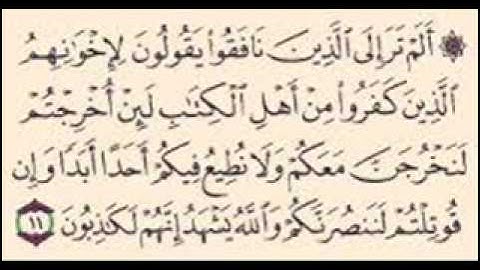 ۞ أَلَمْ تَرَ إِلَى ٱلَّذِينَ نَافَقُوا۟ يَقُولُونَ لِإِخْوَٰنِهِمُ
ٱلَّذِينَ كَفَرُوا۟ مِنْ أَهْلِ ٱلْكِتَٰبِ لَئِنْ أُخْرِجْتُمْ
لَنَخْرُجَنَّ مَعَكُمْ وَلَا نُطِيعُ فِيكُمْ أَحَدًا أَبَدًا وَإِن
قُوتِلْتُمْ لَنَنصُرَنَّكُمْ وَٱللَّهُ يَشْهَدُ إِنَّهُمْ لَكَٰذِبُونَ ١١